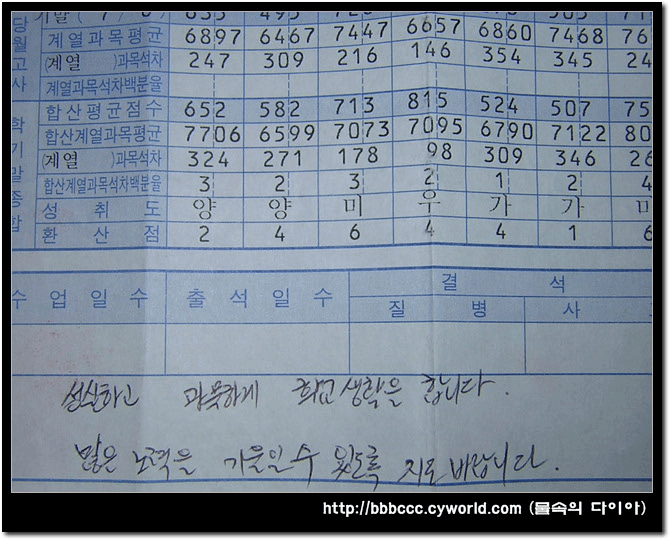 계열과목평균 6897 6467 7447 6657 6860 7468 76
(계열 )과목석차 247 309 216 146 354 345 24
계열과목석차백분율
합산평균점수 652 582 713 815 524 507 75
합산계열과목평균 7706 6599 7073 7095 6790 7122 80
(계열 )과목석차 324 271 178 98 309 346 26
합산계열과목석차백분율 3 2 3 2 1 2 4
성취도 양 양 미 우 가 가 미
환산점 2 4 6 4 4 1 6
수업일수 출석일수 결석
질병 사
성실하고 과묵하게 학교생활을 합니다.
많은 노력을 기울일 수 있도록 지도바랍니다.
http://bbbccc.cyworld.com (몸속의 다이아)